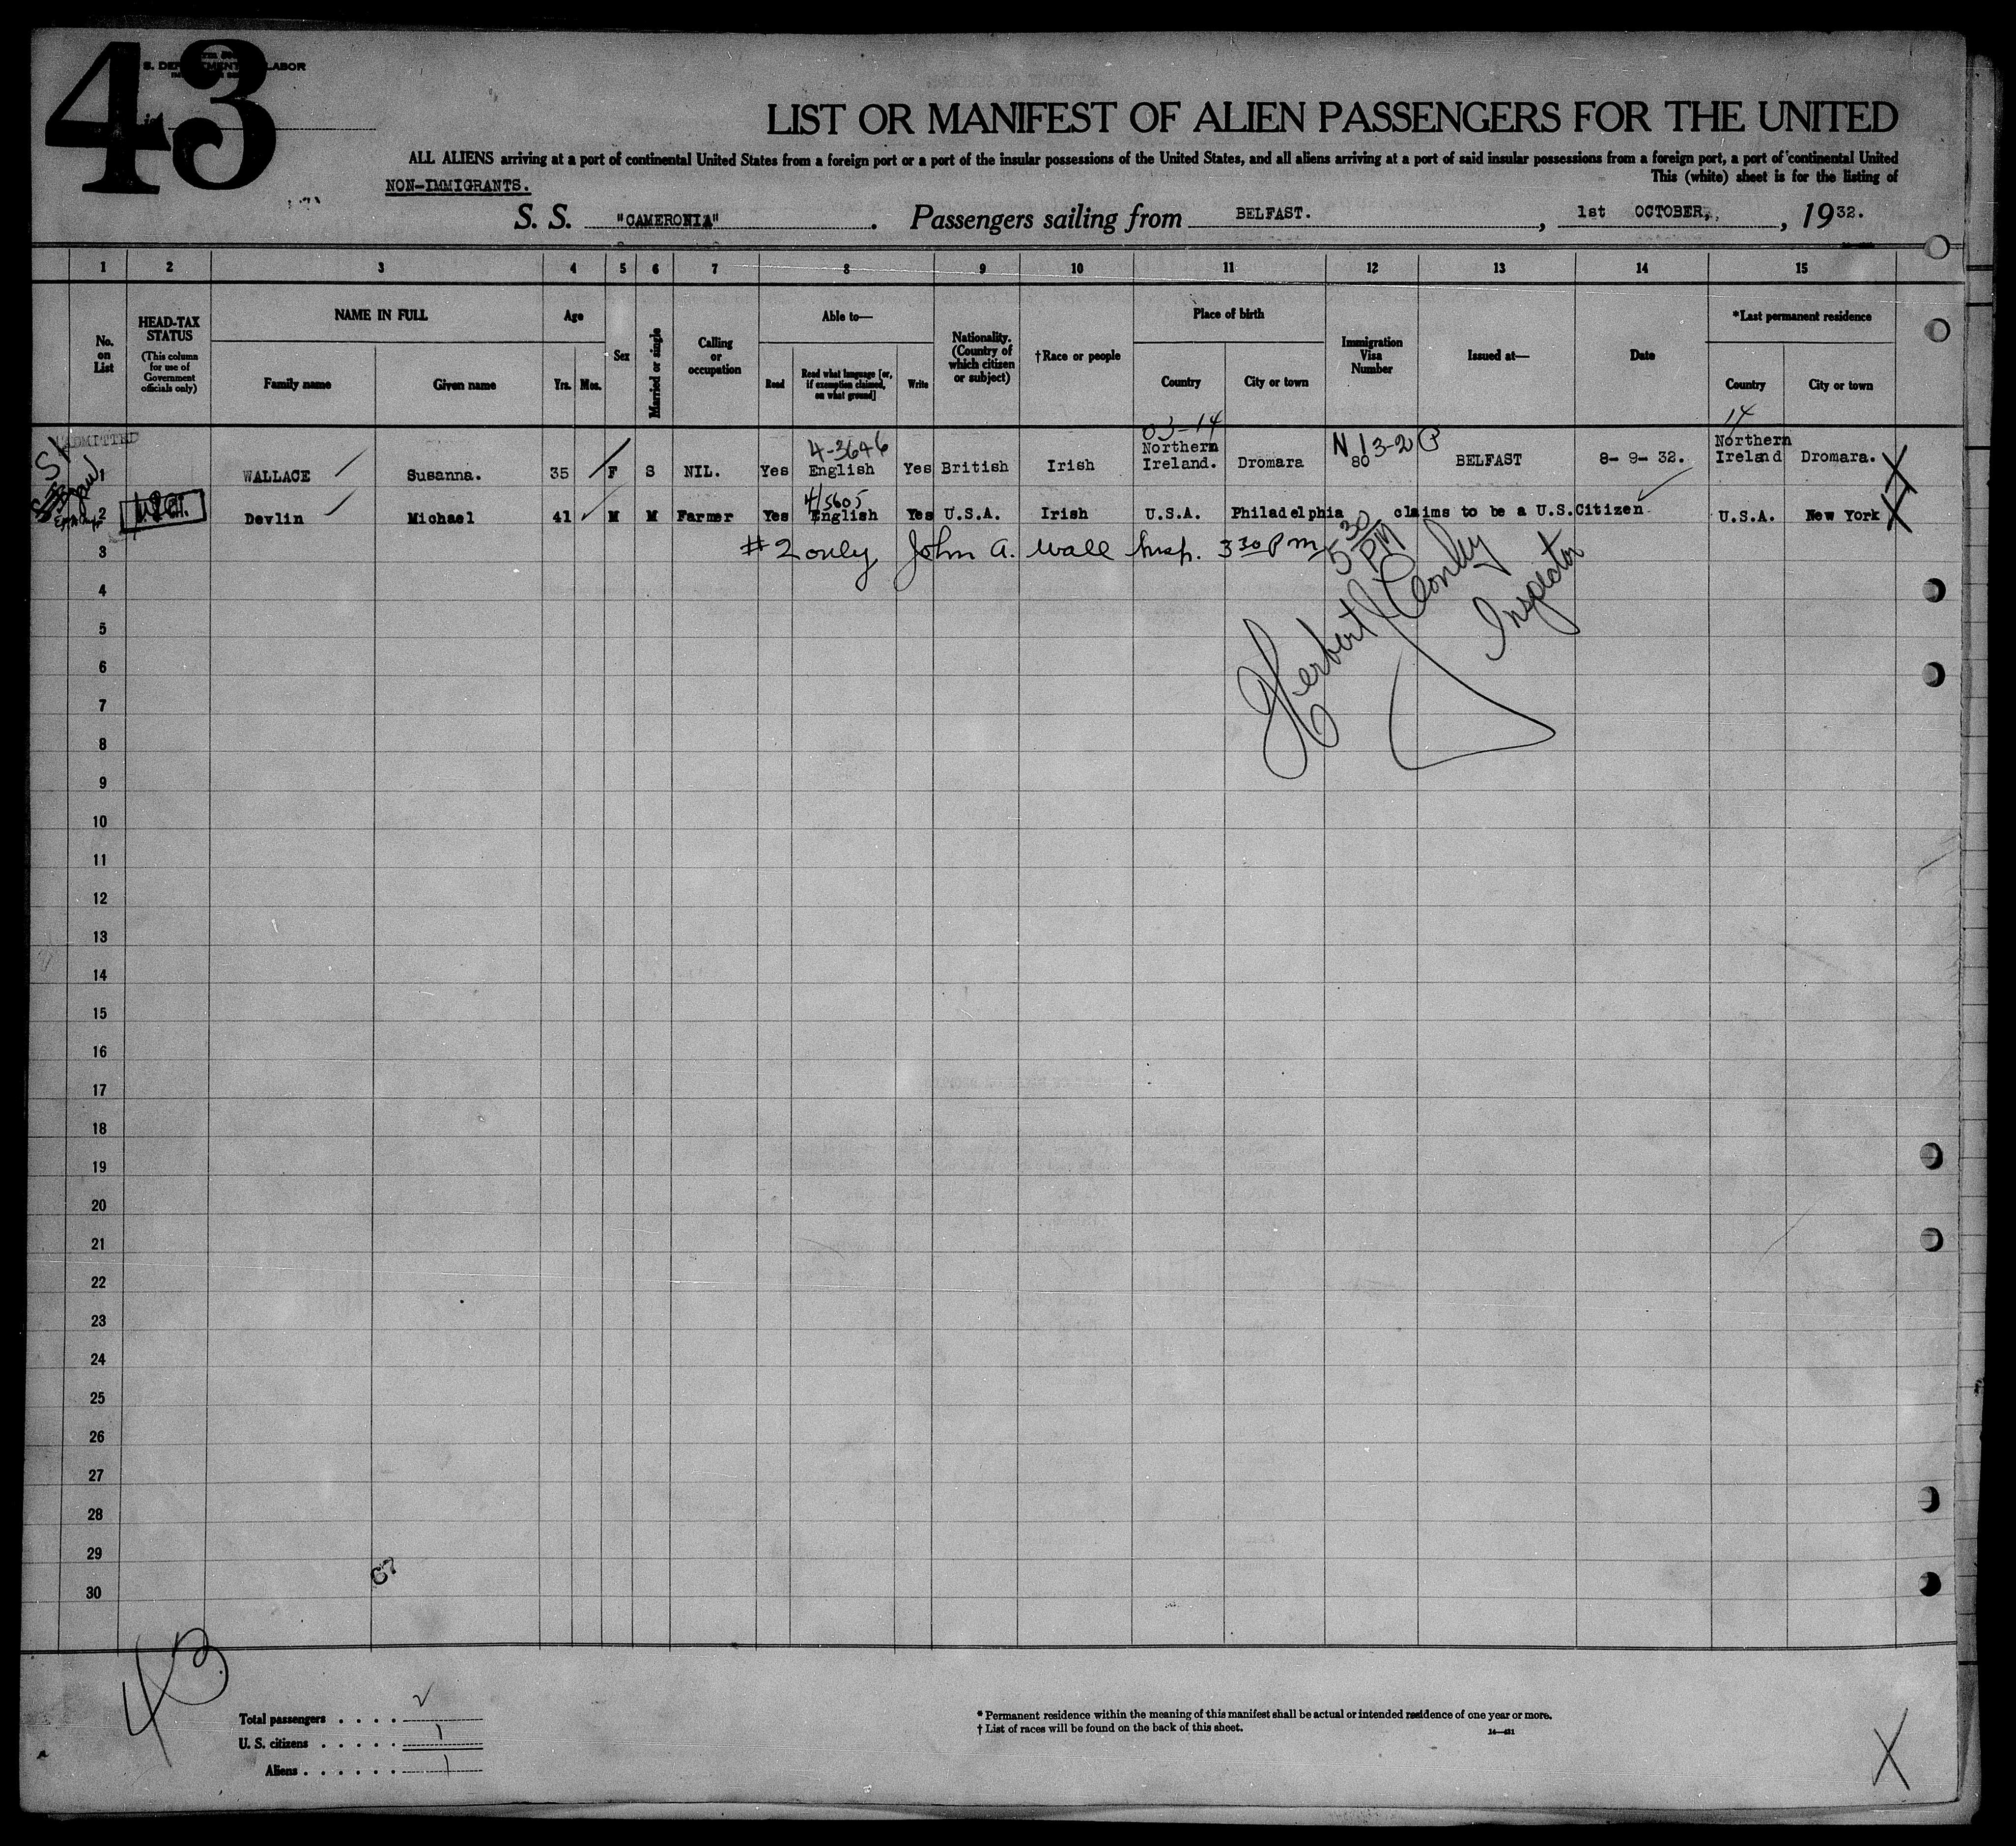 43
S. DEPARTMENT LABOR
LIST OR MANIFEST OF ALIEN PASSENGERS FOR THE UNITED
ALL ALIENS arriving at a port of continental United States from a foreign port or a port of the insular possessions of the United States, and all aliens arriving at a port of said insular possessions from a foreign port, a port of continental United
This (white) sheet is for the listing of
NON-IMMIGRANTS.
S. S. "CAMERONIA". Passengers sailing from BELFAST., 1st OCTOBER,, 1932.
1 2 3 4 5 6 7 8 9 10 11 12 13 14 15
No. on List HEAD-TAX STATUS (This column for use of Government officials only) NAME IN FULL Family name Given name Age Yrs. Mos. Sex Married or single Calling or occupation Able to— Read Read what language [or, if exemption claimed, on what ground] Write Nationality. (Country of which citizen or subject) †Race or people Place of birth Country City or town Immigration Visa Number Issued at— Date *Last permanent residence Country City or town
03-14 14
ADMITTED 4-3646 N 13-2 P
1 WALLACE Susanna. 35 F S NIL. Yes English Yes British Irish Northern Ireland. Dromara 80 BELFAST 8- 9- 32. Northern Ireland Dromara. X
4/5605
2 Devlin Michael 41 M M Farmer Yes English Yes U.S.A. Irish U.S.A. Philadelphia claims to be a U.S.Citizen U.S.A. New York X
3 #2 only John A. Wall Insp. 3 30 P m 5 30 PM
Herbert Conley Inspector
4
5
6
7
8
9
10
11
12
13
14
15
16
17
18
19
20
21
22
23
24
25
26
27
28
29
30
43
Total passengers . . . . 2
U. S. citizens . . . . . 1
Aliens . . . . . . 1
* Permanent residence within the meaning of this manifest shall be actual or intended residence of one year or more.
† List of races will be found on the back of this sheet.
X